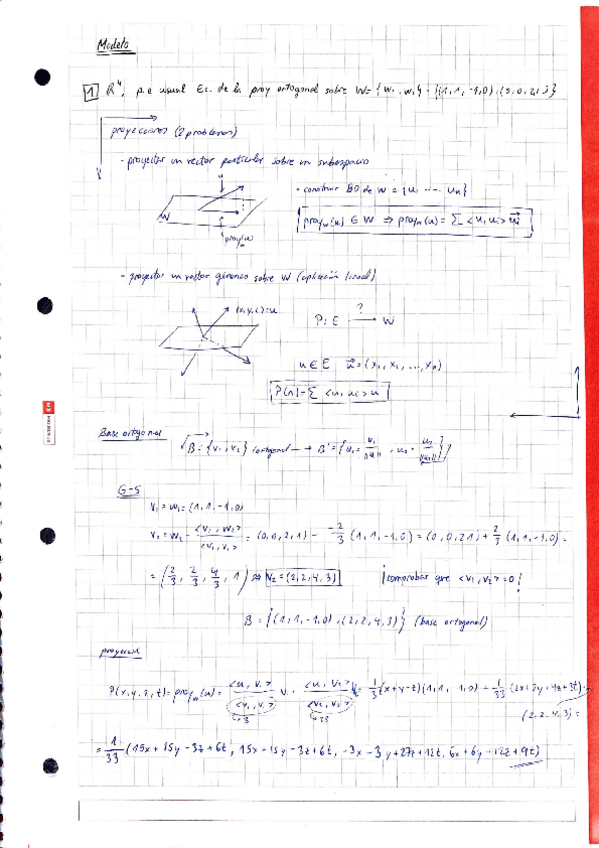 Modelo
1 R⁴, p.e usual Ec. de la proy ortogonal sobre W = {w₁, w₂} = {(1, 1, -1, 0), (0, 0, 2, 1)}
proyecciones (2 problemas)
- proyectar un vector particular sobre un subespacio
u
W
proy_w(u)
· construir BO de W = {u₁ ... uₙ}
proy_w(u) ∈ W ⇒ proy_w(u) = Σ <u, uᵢ> uᵢ
- proyectar un vector genérico sobre W (aplicación lineal)
(x,y,z)=u
P: E →? W
u ∈ E u = (x₁, x₂, ..., xₙ)
P(u) = Σ <u, uᵢ> u
Base ortogonal
B = {v₁, v₂} (ortogonal → B' = {u₁ = v₁/‖v₁‖, u₂ = v₂/‖v₂‖}
G-S
v₁ = w₁ = (1, 1, -1, 0)
v₂ = w₂ - <v₁, w₂>/<v₁, v₁> = (0, 0, 2, 1) - -2/3 (1, 1, -1, 0) = (0, 0, 2, 1) + 2/3 (1, 1, -1, 0) =
= (2/3, 2/3, 4/3, 1) ≈ v₂ = (2, 2, 4, 3) ¡comprobar que <v₁, v₂> = 0!
B = {(1, 1, -1, 0), (2, 2, 4, 3)} (base ortogonal)
proyección
P(x, y, z, t) = proy_w(u) = <u, v₁>/<v₁, v₁> v₁ <u, v₂>/<v₂, v₂> v₂ = 1/3 (x+y-z)(1, 1, -1, 0) + 1/33 (2x+2y+4z+3t) ·
→3 →33 (2, 2, 4, 3) =
= 1/33 (15x + 15y - 3z + 6t, 15x + 15y - 3z + 6t, -3x - 3y + 27z + 12t, 6x + 6y + 12z + 9t)